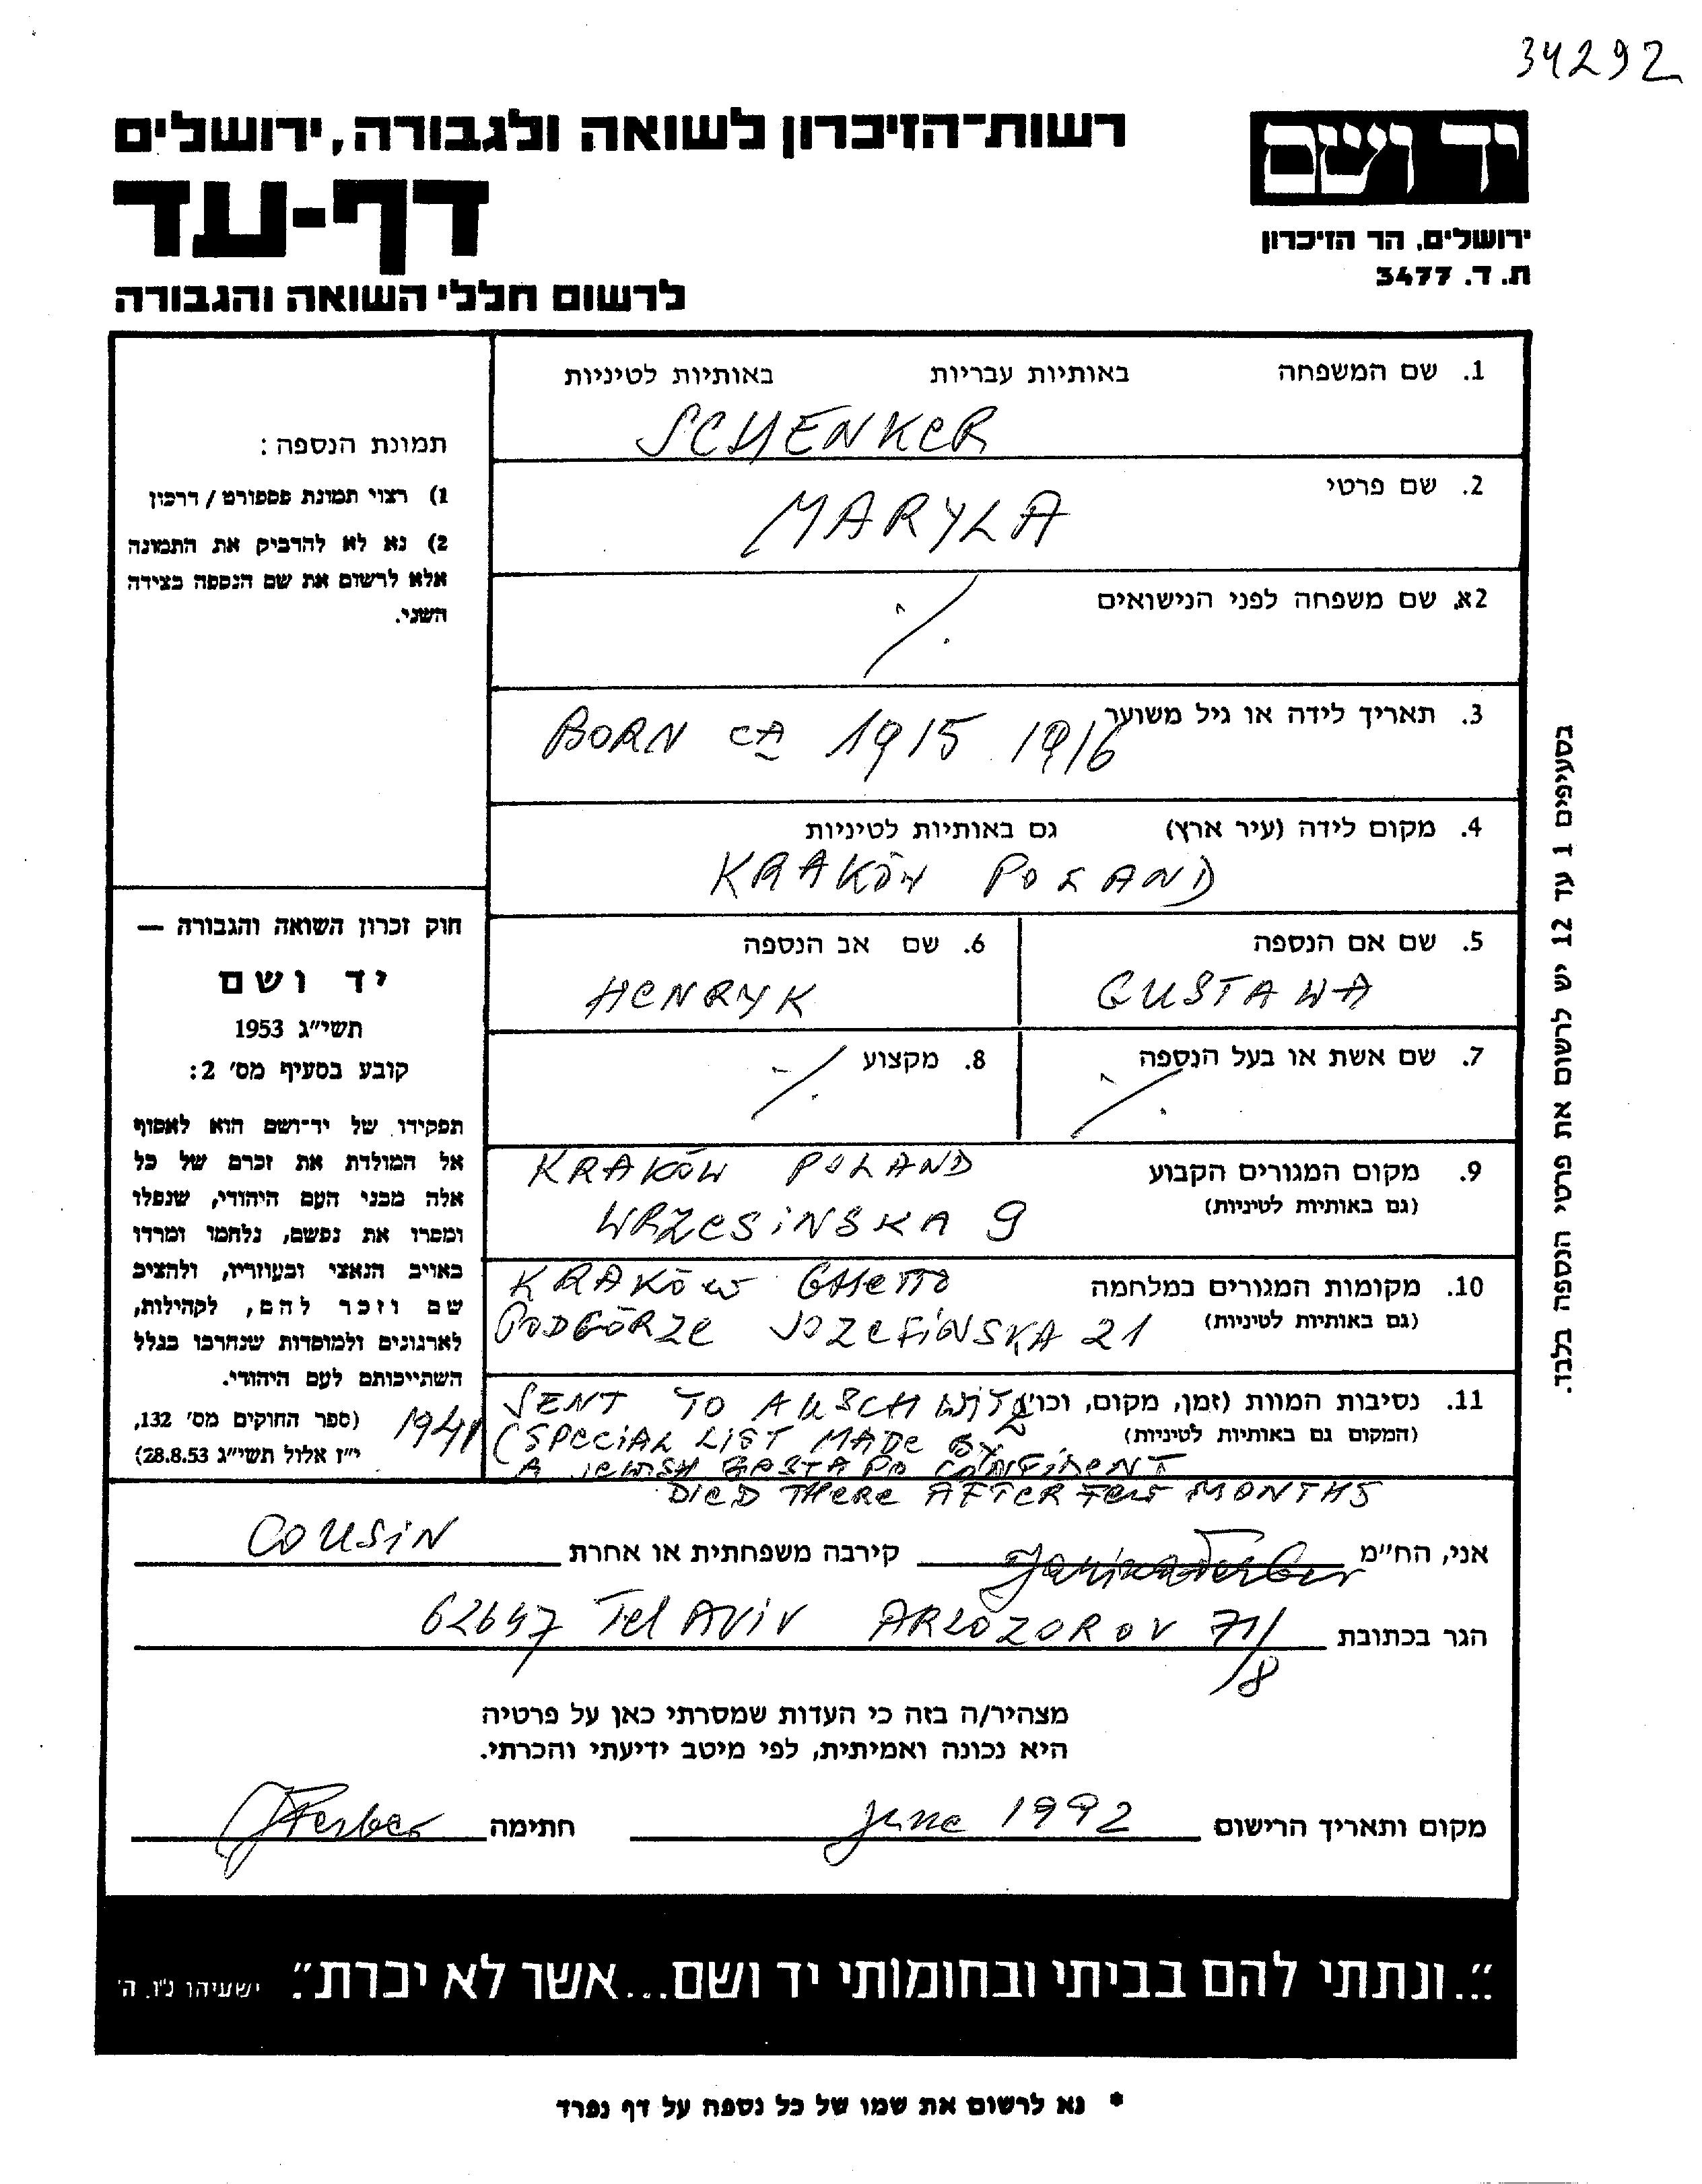 34292
רשות־הזיכרון לשואה ולגבורה, ירושלים
דף-עד
לרשום חללי השואה והגבורה
יד ושם
ירושלים, הר הזיכרון
ת. ד. 3477
1. שם המשפחה באותיות עבריות באותיות לטיניות
SCHENKER
2. שם פרטי
MARYLA
2א. שם משפחה לפני הנישואים
3. תאריך לידה או גיל משוער
BORN CA 1915 1916
4. מקום לידה (עיר ארץ) גם באותיות לטיניות
KRAKÓW POLAND
5. שם אם הנספה
GUSTAWA
6. שם אב הנספה
HENRYK
7. שם אשת או בעל הנספה
8. מקצוע
9. מקום המגורים הקבוע
(גם באותיות לטיניות)
KRAKÓW POLAND
WRZESINSKA 9
10. מקומות המגורים במלחמה
(גם באותיות לטיניות)
KRAKÓW GHETTO
PODGÓRZE JOZEFINSKA 21
11. נסיבות המוות (זמן, מקום, וכו׳)
(המקום גם באותיות לטיניות)
SENT TO AUSCHWITZ
1941 (SPECIAL LIST MADE BY
A JEWISH GESTAPO CONFIDENT
DIED THERE AFTER FEW MONTHS
תמונת הנספה:
1) רצוי תמונת פספורט / דרכון
2) נא לא להדביק את התמונה
אלא לרשום את שם הנספה בצידה
השני.
חוק זכרון השואה והגבורה —
יד ושם
תשי״ג 1953
קובע בסעיף מס׳ 2:
תפקידו של יד־ושם הוא לאסוף
אל המולדת את זכרם של כל
אלה מבני העם היהודי, שנפלו
ומסרו את נפשם, נלחמו ומרדו
באויב הנאצי ובעוזריו, ולהציב
שם וזכר להם, לקהילות,
לארגונים ולמוסדות שנחרבו בגלל
השתייכותם לעם היהודי.
(ספר החוקים מס׳ 132,
י״ז אלול תשי״ג 28.8.53)
בסעיפים 1 עד 12 יש לרשום את פרטי הנספה בלבד.
אני, הח״מ Janina Ferber קירבה משפחתית או אחרת COUSIN
הגר בכתובת ARLOZOROV 71/8 Tel AViV 62647
מצהיר/ה בזה כי העדות שמסרתי כאן על פרטיה
היא נכונה ואמיתית, לפי מיטב ידיעתי והכרתי.
מקום ותאריך הרישום june 1992 חתימה JFerber
״...ונתתי להם בביתי ובחומותי יד ושם...אשר לא יכרת״. ישעיהו נ״ו, ה׳
* נא לרשום את שמו של כל נספה על דף נפרד